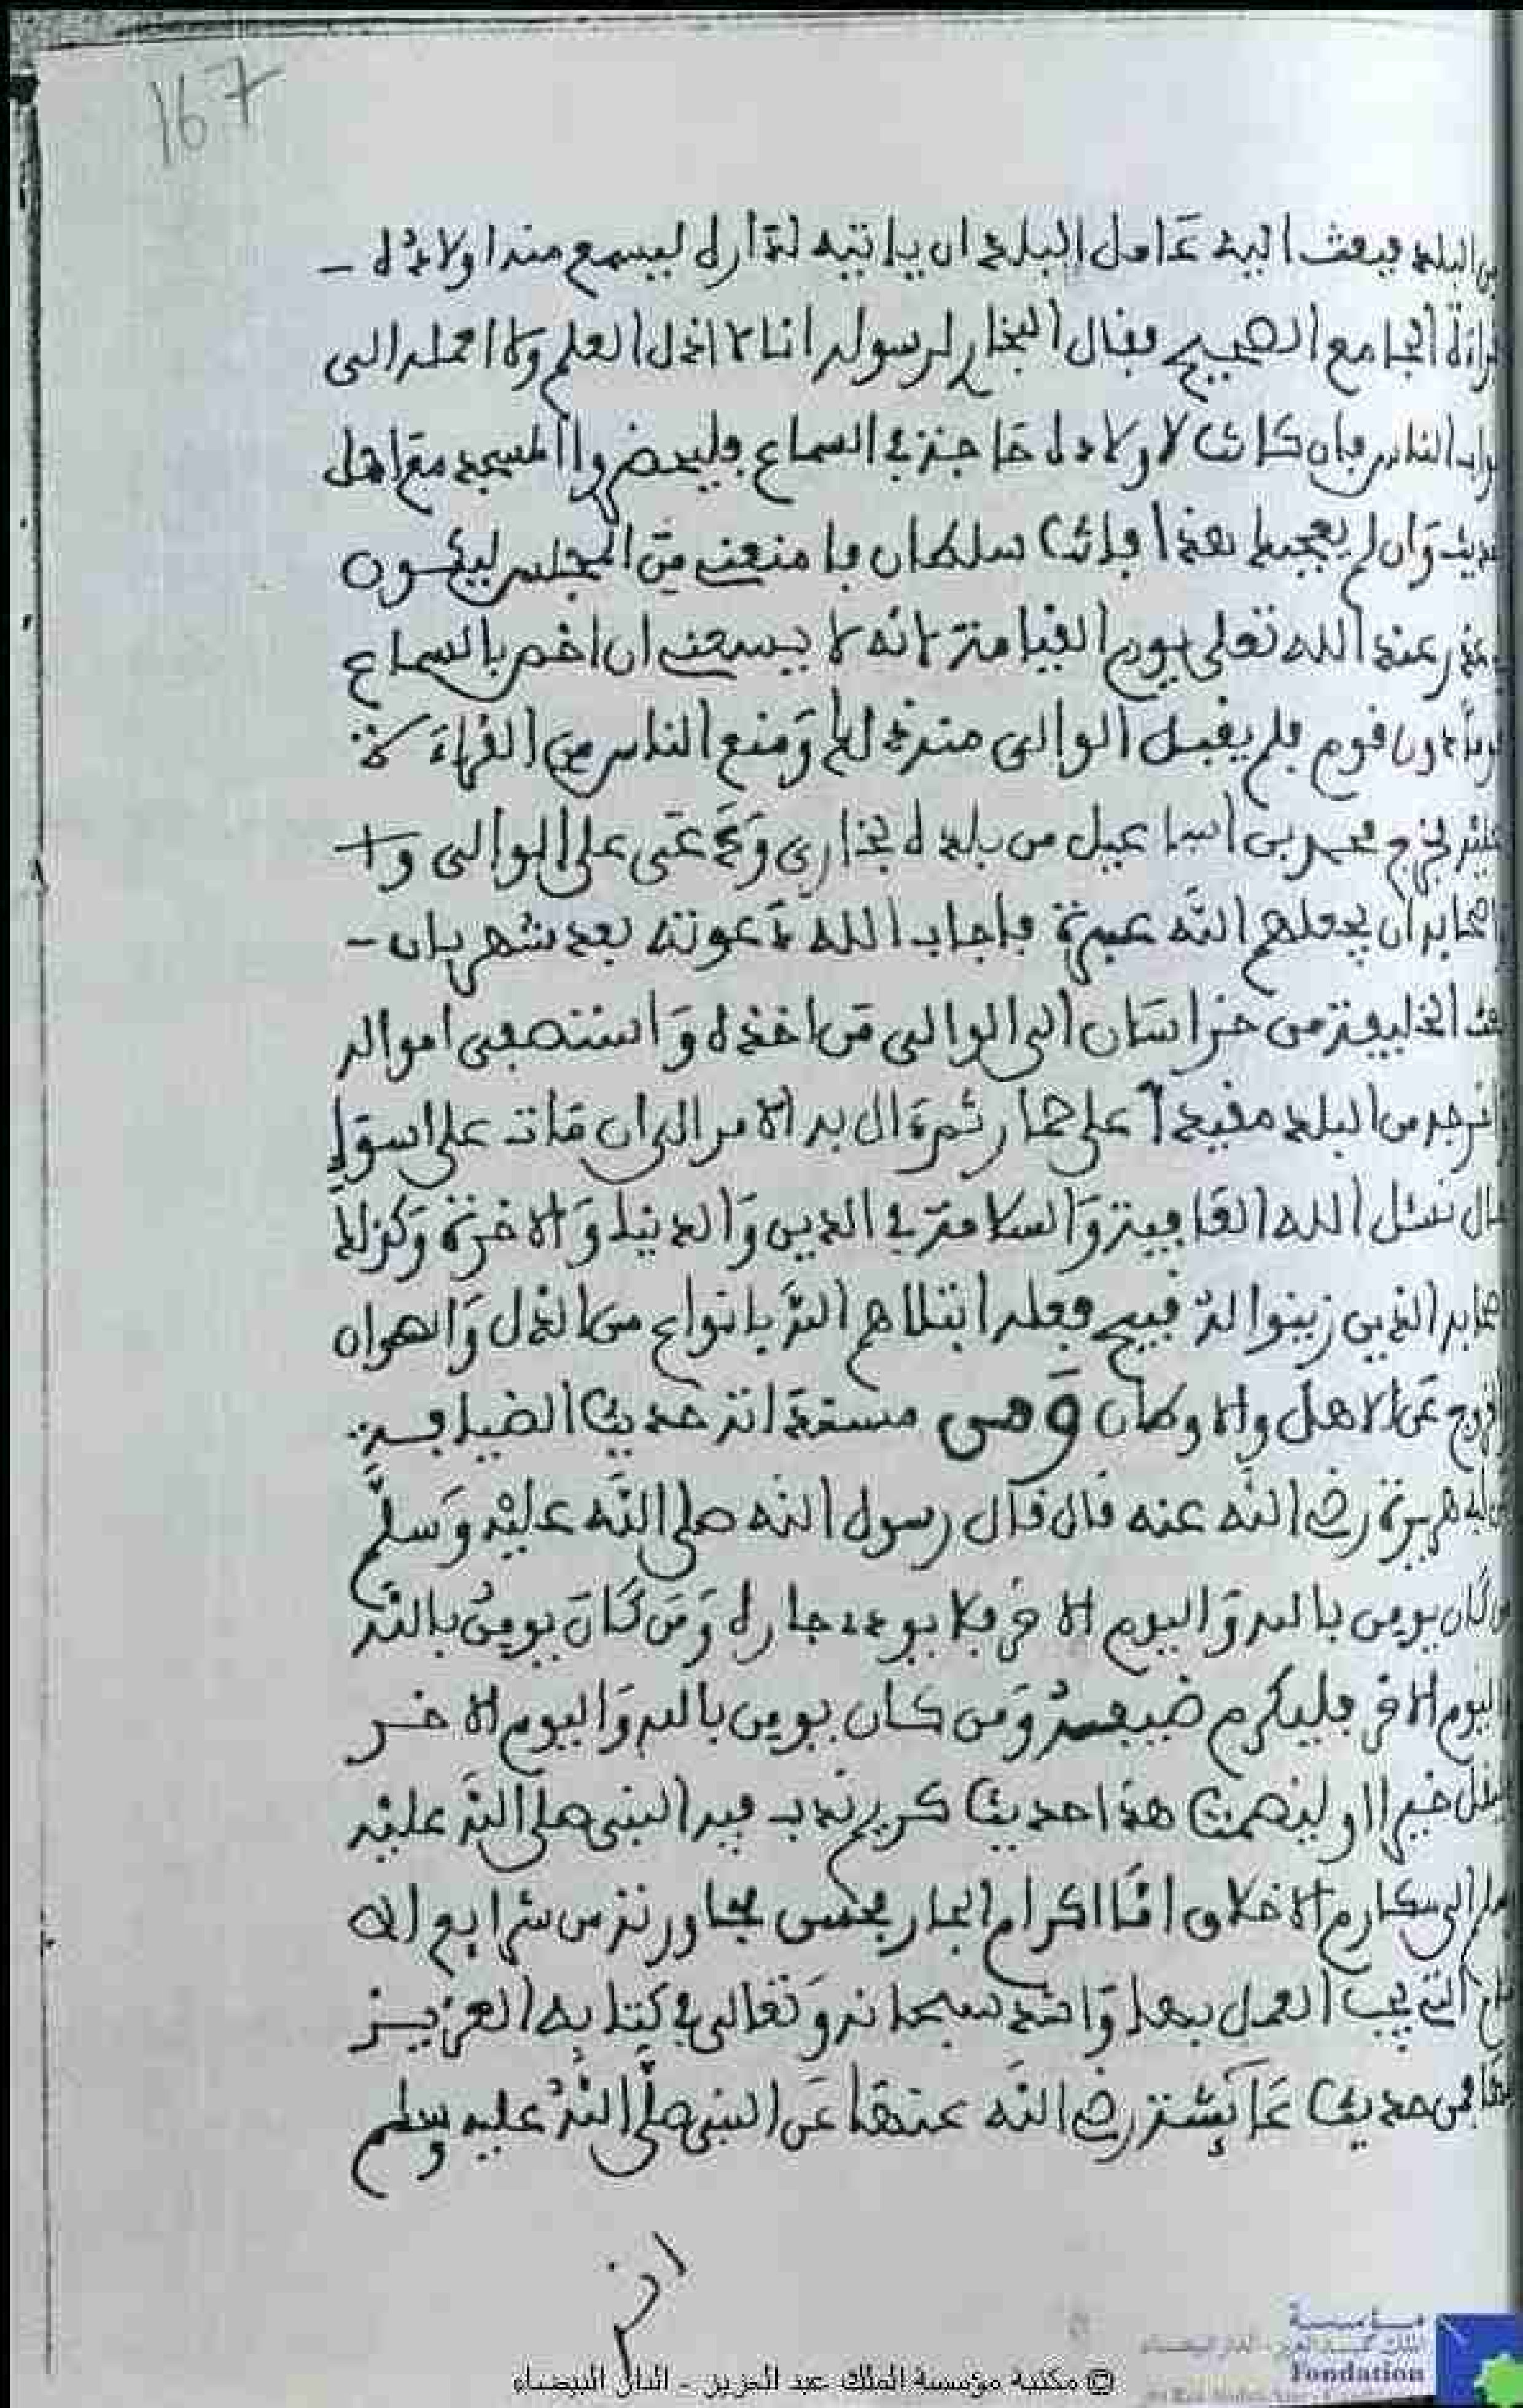 167
البلد فبعث اليه عامل البلد ان ياتيه لداره ليسمع منه اولاده
قراءة الجامع الصحيح فقال البخاري لرسوله انا لا اذل العلم ولا احمله الى
ابواب الناس فان كانت لاولادك حاجة في السماع فليحضروا المسجد مع اهل
الحديث وان لم يعجبك هذا فانت سلطان فامنعني من المجلس ليكون
عذر عند الله تعلى يوم القيامة لانه لا يسعني ان اخص بالسماع
قوما دون قوم فلم يقبل الوالى منه ذلك ومنع الناس من القراءة
عليه فخرج محمد بن اسماعيل من بلده بخارى ودعى على الوالى و
اصحابه ان يجعلهم الله عبرة فاجاب الله دعوته بعد شهر بان
بعث الخليفة من خراسان الى الوالى من اخذه واستصفى امواله
اخرجه من البلد مقيدا على حمار ثم ءال به الامر الى ان مات على اسوإ
حال نسئل الله العافية والسلامة في الدين والدنيا والاخرة وكذلك
اصحابه الذين زينوا له قبيح فعله ابتلاهم الله بانواع من الذل والهوان
الخروج عن الاهل والاوطان وهى مستفادة حديث الضيافة
ابي هريرة رضي الله عنه قال قال رسول الله صلى الله عليه وسلم
من كان يومن بالله واليوم الاخر فلا يوذ جاره ومن كان يومن بالله
واليوم الاخر فليكرم ضيفه ومن كان يومن بالله واليوم الاخر
فليقل خيرا او ليصمت هذا حديث كريم ندب فيه النبى صلى الله عليه
وسلم الى مكارم الاخلاق اما اكرام الجار بحسن مجاورته من شرايع الا
سلام التي يجب العمل بها والله سبحانه وتعالى في كتابه العزيز
فمن حديث عائشة رضي الله عنها عن النبى صلى الله عليه وسلم
© مكتبة مؤسسة الملك عبد العزيز - الدار البيضاء
مؤسسة
Fondation